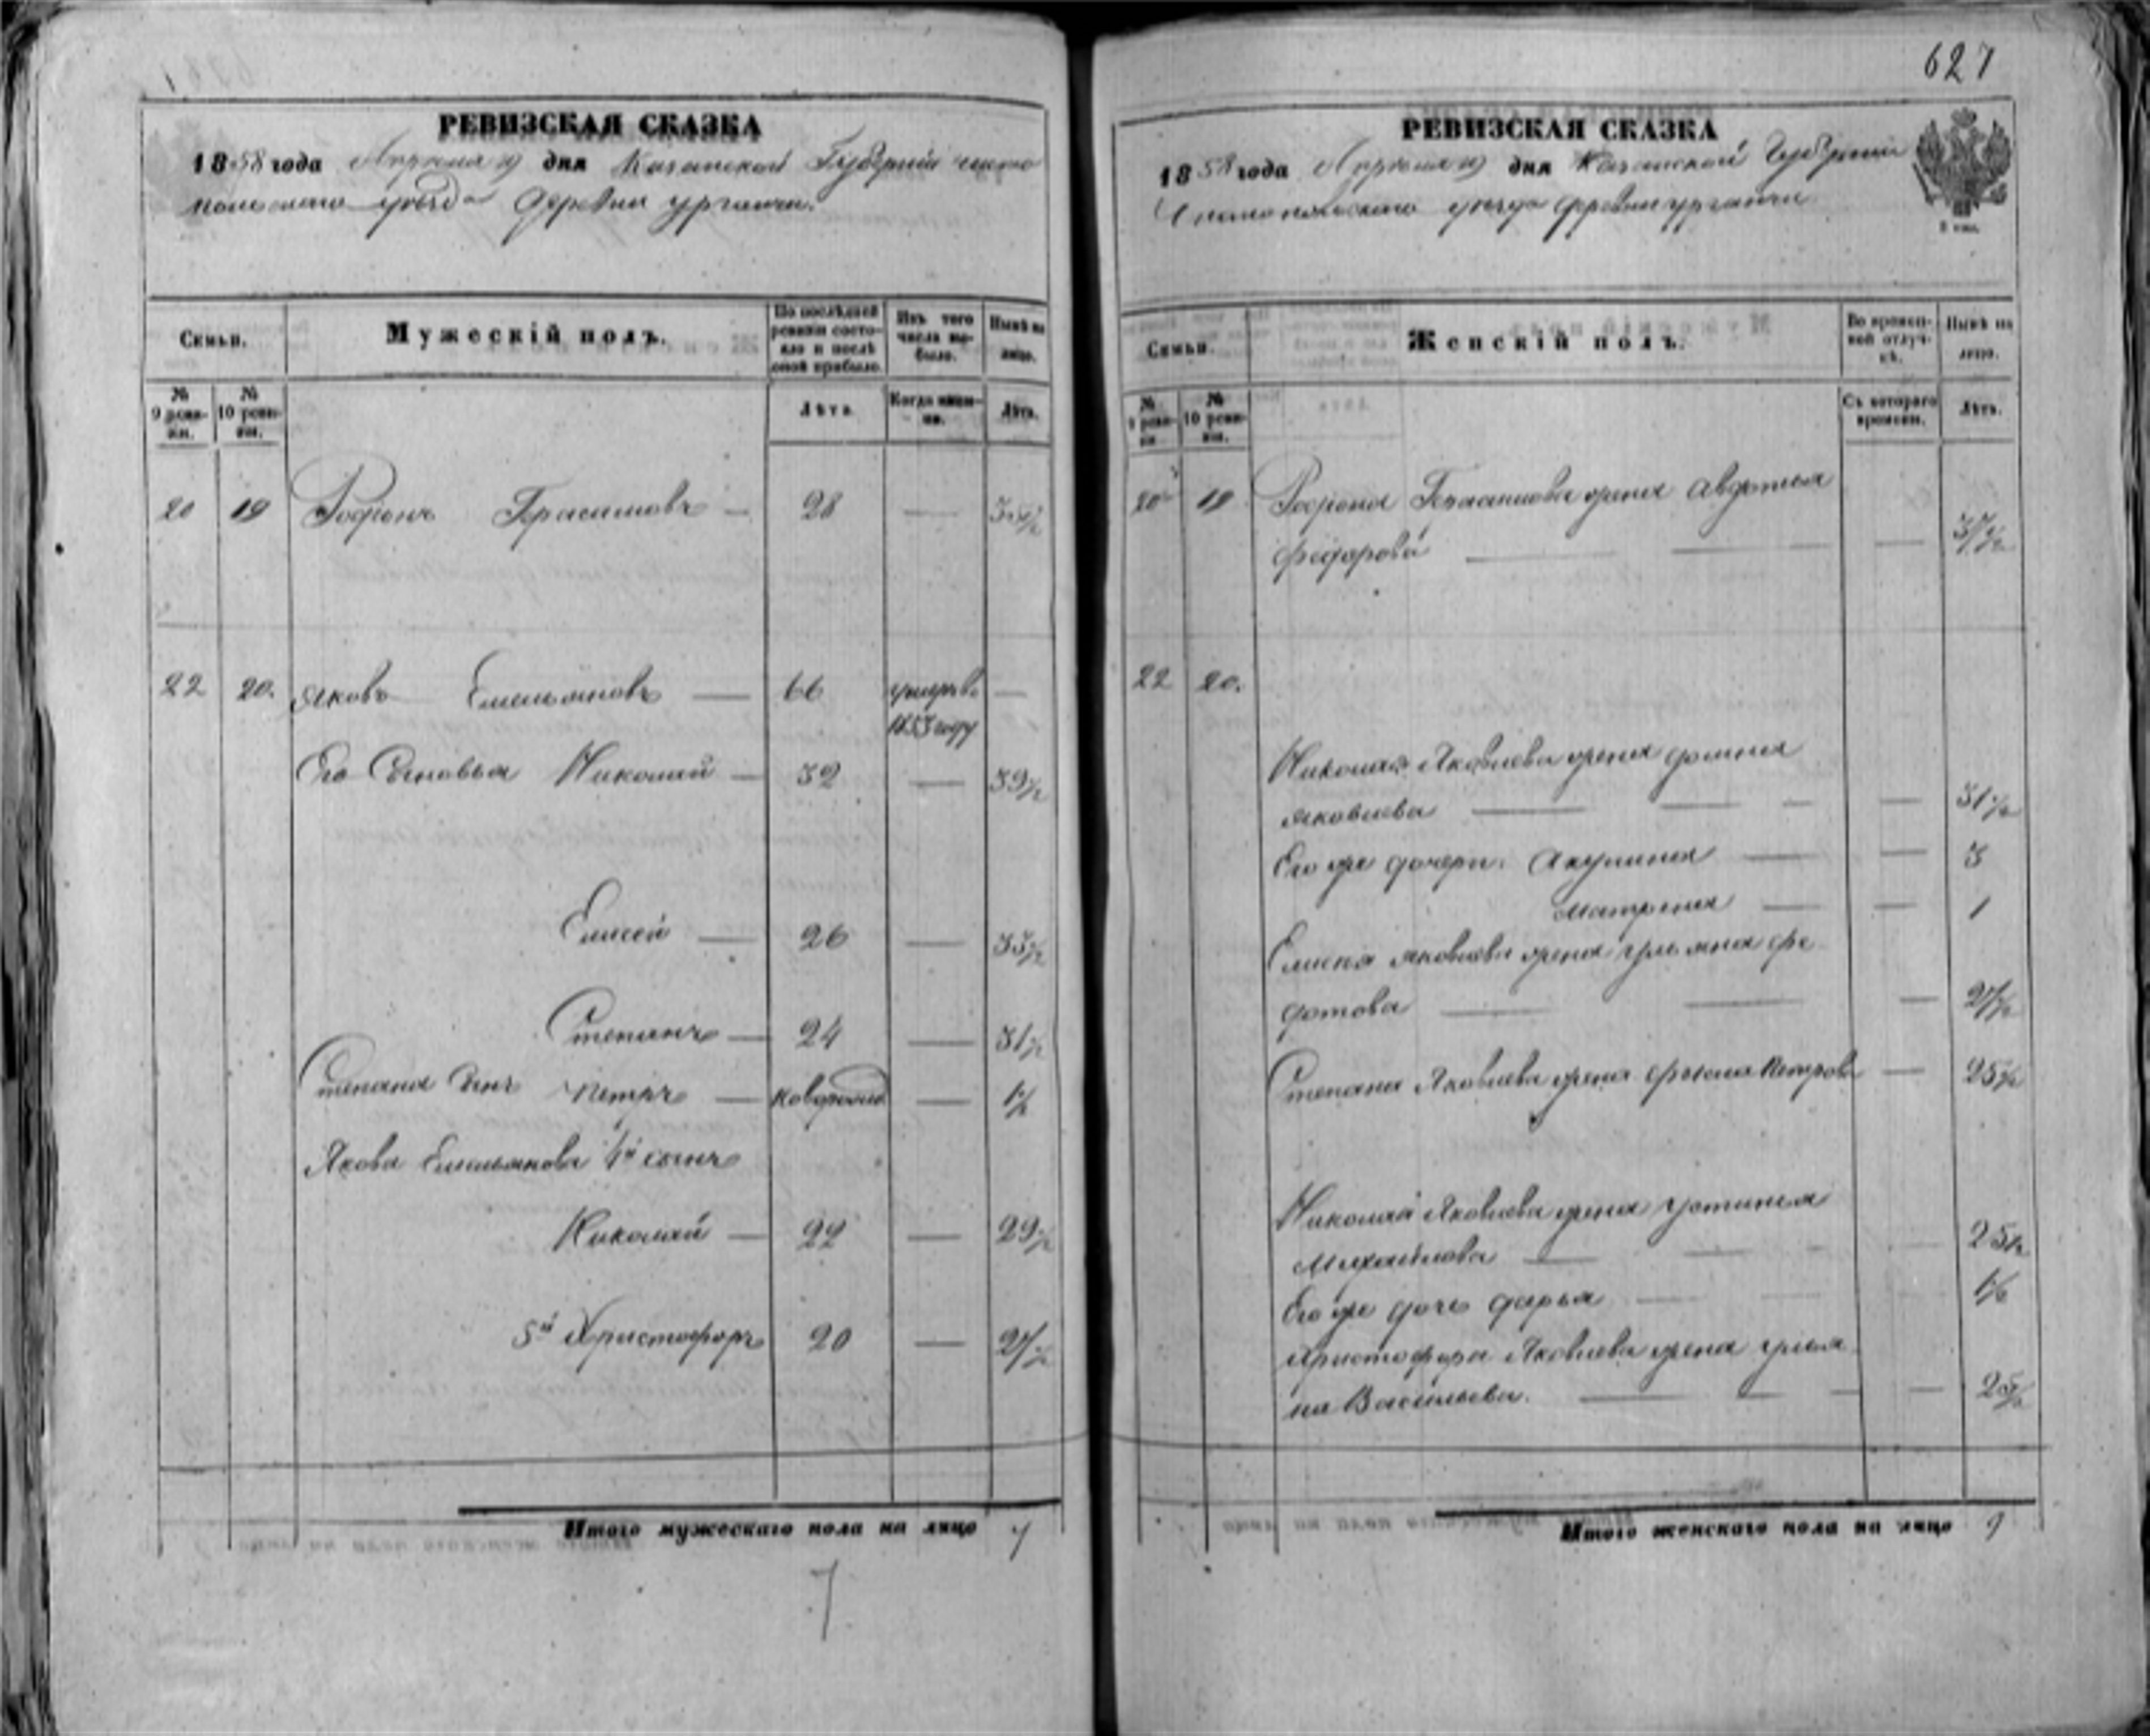 627
РЕВИЗСКАЯ СКАЗКА
1858 года Апреля дня Казанской Губернии Чисто
польскаго уѣзда Деревни Урганчи.
Семьи.
Мужескій полъ.
По послѣдней ревизіи состояло и послѣ оной прибыло.
Изъ того числа выбыло.
Нынѣ на лицо.
№ 9 ревизіи.
№ 10 ревизіи.
Лѣта
Когда именно.
Лѣта.
20 19 Родіонъ Герасимовъ — 28 — 35½
22 20. Яковъ Емельяновъ — 66 умеръ в. —
1853 году
Его Сыновья Николай — 32 — 39½
Елисей — 26 — 33½
Степанъ — 24 — 31½
Степана Сынъ Петръ — новорожд — 1½
Якова Емельянова 4й сынъ
Николай — 22 — 29½
5й Христофоръ 20 — 27½
Итого мужескаго пола на лицо 7
7
РЕВИЗСКАЯ СКАЗКА
1858 года Апреля дня Казанской Губернии
Чистопольскаго уезда деревни Урганчи
2 сен.
Семьи.
Женскій полъ.
Во временной отлучкѣ.
Нынѣ на лицо.
№ 9 ревизіи
№ 10 ревизіи.
Съ котораго времени.
Лѣта.
20 19 Родіона Герасимова жена Авдотья
Федорова — — — 37½
22 20.
Николая Яковлева жена Домна
Яковлева — — — — 31½
Его же дочери. Акулина — — 3
Матрена — — 1
Елисея Яковлева жена Ульяна Фе
дотова — — — 27½
Степана Яковлева жена Фекла Петрова — 25½
Николая Яковлева жена Устинья
Михайлова — — 25½
Его же дочь Дарья
Христофора Яковлева жена Улья
на Васильева. — — — — 25½
Итого женскаго пола на лицо 9